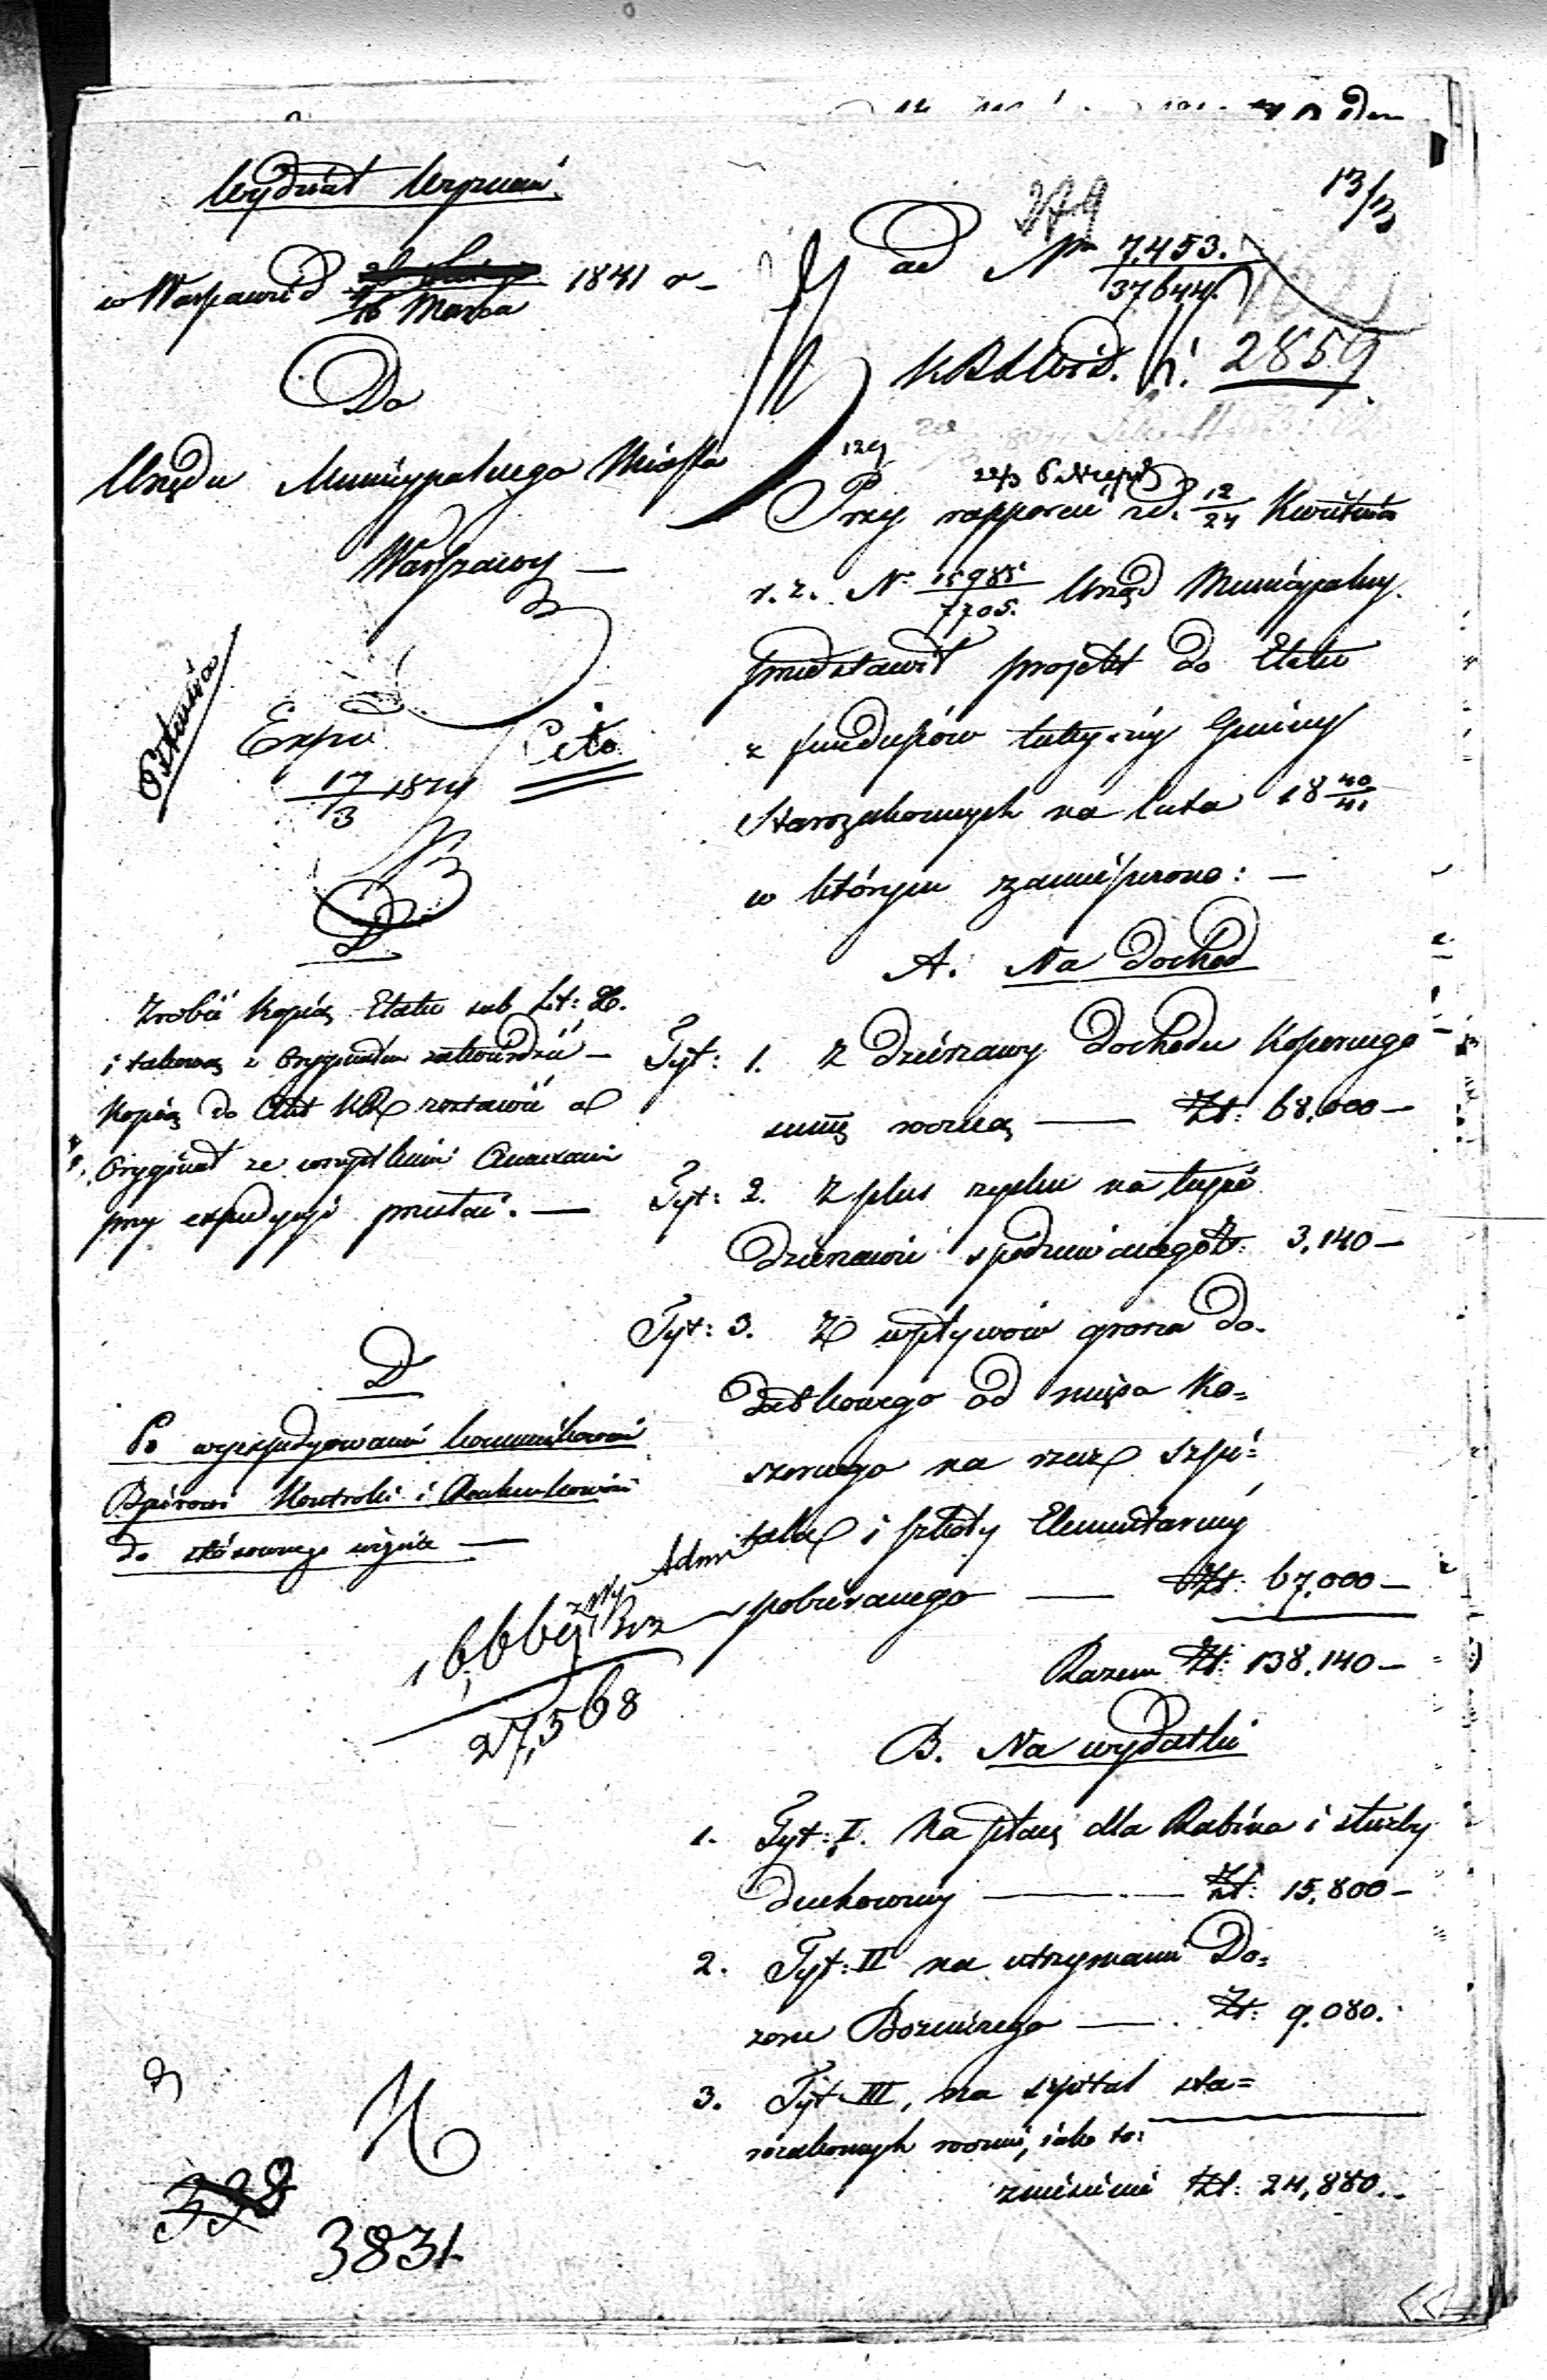 Wydział Wyznań
w Warszawie
4/16 Marca 1841 r.
Do
Urzędu Municypalnego Miasta
Warszawy —
Expd
17/3 1841
Cito
D
Zrobić kopią Etatu sub Lit:
i takową z Oryginałem zatwierdzić —
Kopią do Akt zostawić a
Oryginał ze wszystkiemi Annexami
przy expedycyi przesłać. —
D
Po wyexpedyowaniu kommunikować
Biurowi Kontroli i Rachunkowości
do stósownego wyjście —
27,568
338
3831
13/3
279
ad Nr 7453./37644.
2859
Przy rapporcie zd. 12/24 Kwietnia
r. z. N. 15985/7705. Urząd Municypalny
przedstawił projekt do Etatu
z funduszów tutejszéy Gminy
Starozakonnych na lata 18 40/41
w którym zamieszczono: —
A. Na dochod
Tyt: 1. Z dzierżawy dochodu Koszernego
summę roczną — Zł: 68,000 —
Tyt: 2. Z plus zysku na teyże
dzierżawie spodziewanego Zł: 3,140 —
Tyt: 3. Z wpływów grosza do-
datkowego od mięsa Ko=
szernego na rzecz szpi=
tala i szkoły Elementarnéy
pobieranego — Zł: 67,000 —
Razem Zł: 138,140 —
B. Na wydatki
1. Tyt: I. Na płacę dla Rabina i służby
duchownéy — Zł: 15,800 —
2. Tyt: II na utrzymanie Do=
zoru Bożniczego — Zł: 9.080.
3. Tyt: III, na szpital sta=
rozakonnych rocznie, iako to:
Zł: 24,880.